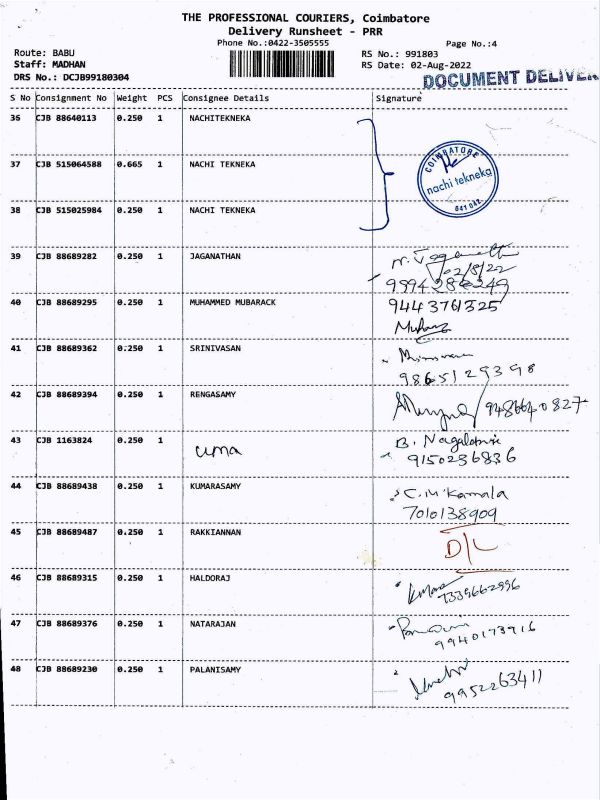 THE PROFESSIONAL COURIERS, Coimbatore
Delivery Runsheet - PRR
Phone No.:0422-3505555
Page No.:4
Route: BABU
RS No.: 991803
Staff: MADHAN
RS Date: 02-Aug-2022
DRS No.: DCJB99180304
DOCUMENT DELIVER
S No Consignment No Weight PCS Consignee Details Signature
36 CJB 88640113 0.250 1 NACHITEKNEKA
COIMBATORE
37 CJB 515064588 0.665 1 NACHI TEKNEKA
nachi tekneka
641 042
38 CJB 515025984 0.250 1 NACHI TEKNEKA
39 CJB 88689282 0.250 1 JAGANATHAN
02/8/22
40 CJB 88689295 0.250 1 MUHAMMED MUBARACK 9443761325
41 CJB 88689362 0.250 1 SRINIVASAN
9865129398
42 CJB 88689394 0.250 1 RENGASAMY
43 CJB 1163824 0.250 1 uma B.
9150236836
44 CJB 88689438 0.250 1 KUMARASAMY C.M Kamala
7010138909
45 CJB 88689487 0.250 1 RAKKIANNAN D/L
46 CJB 88689315 0.250 1 HALDORAJ
7339662996
47 CJB 88689376 0.250 1 NATARAJAN
9940173916
48 CJB 88689230 0.250 1 PALANISAMY
9952263411